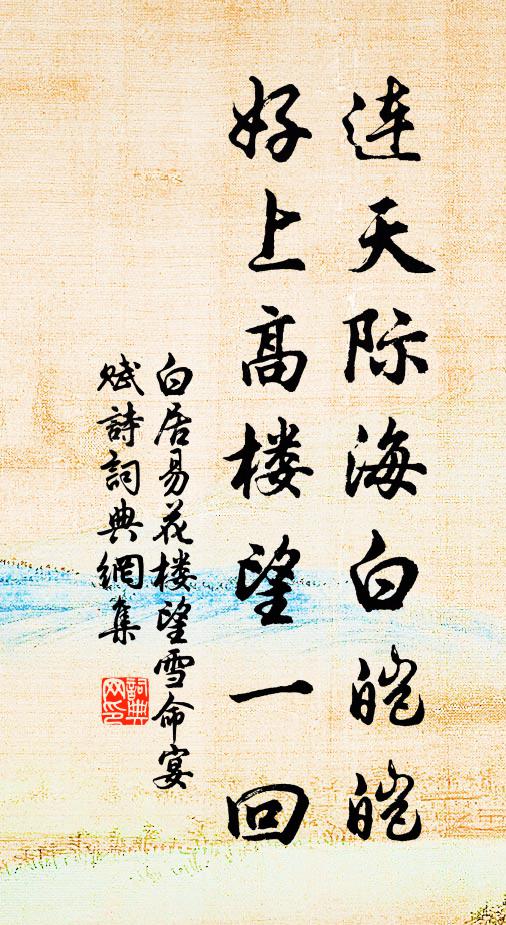 连天际海白皑皑
好上高楼望一回
白居易花楼望雪命宴
赋詩詞典網集
詞典
网印